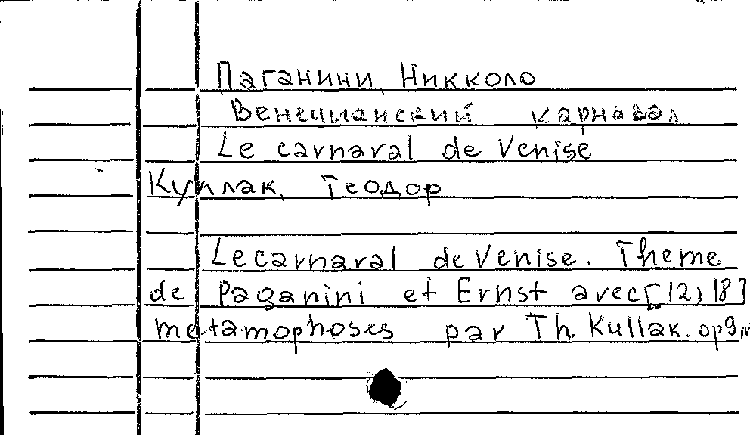 Паганини, Никколо
Венецианский карнавал
Le carnaval de Venise
Куллак, Теодор
Le carnaval de Venise. Theme
de Paganini et Ernst avec [12) 18]
metamophoses par Th. Kullak. op 9